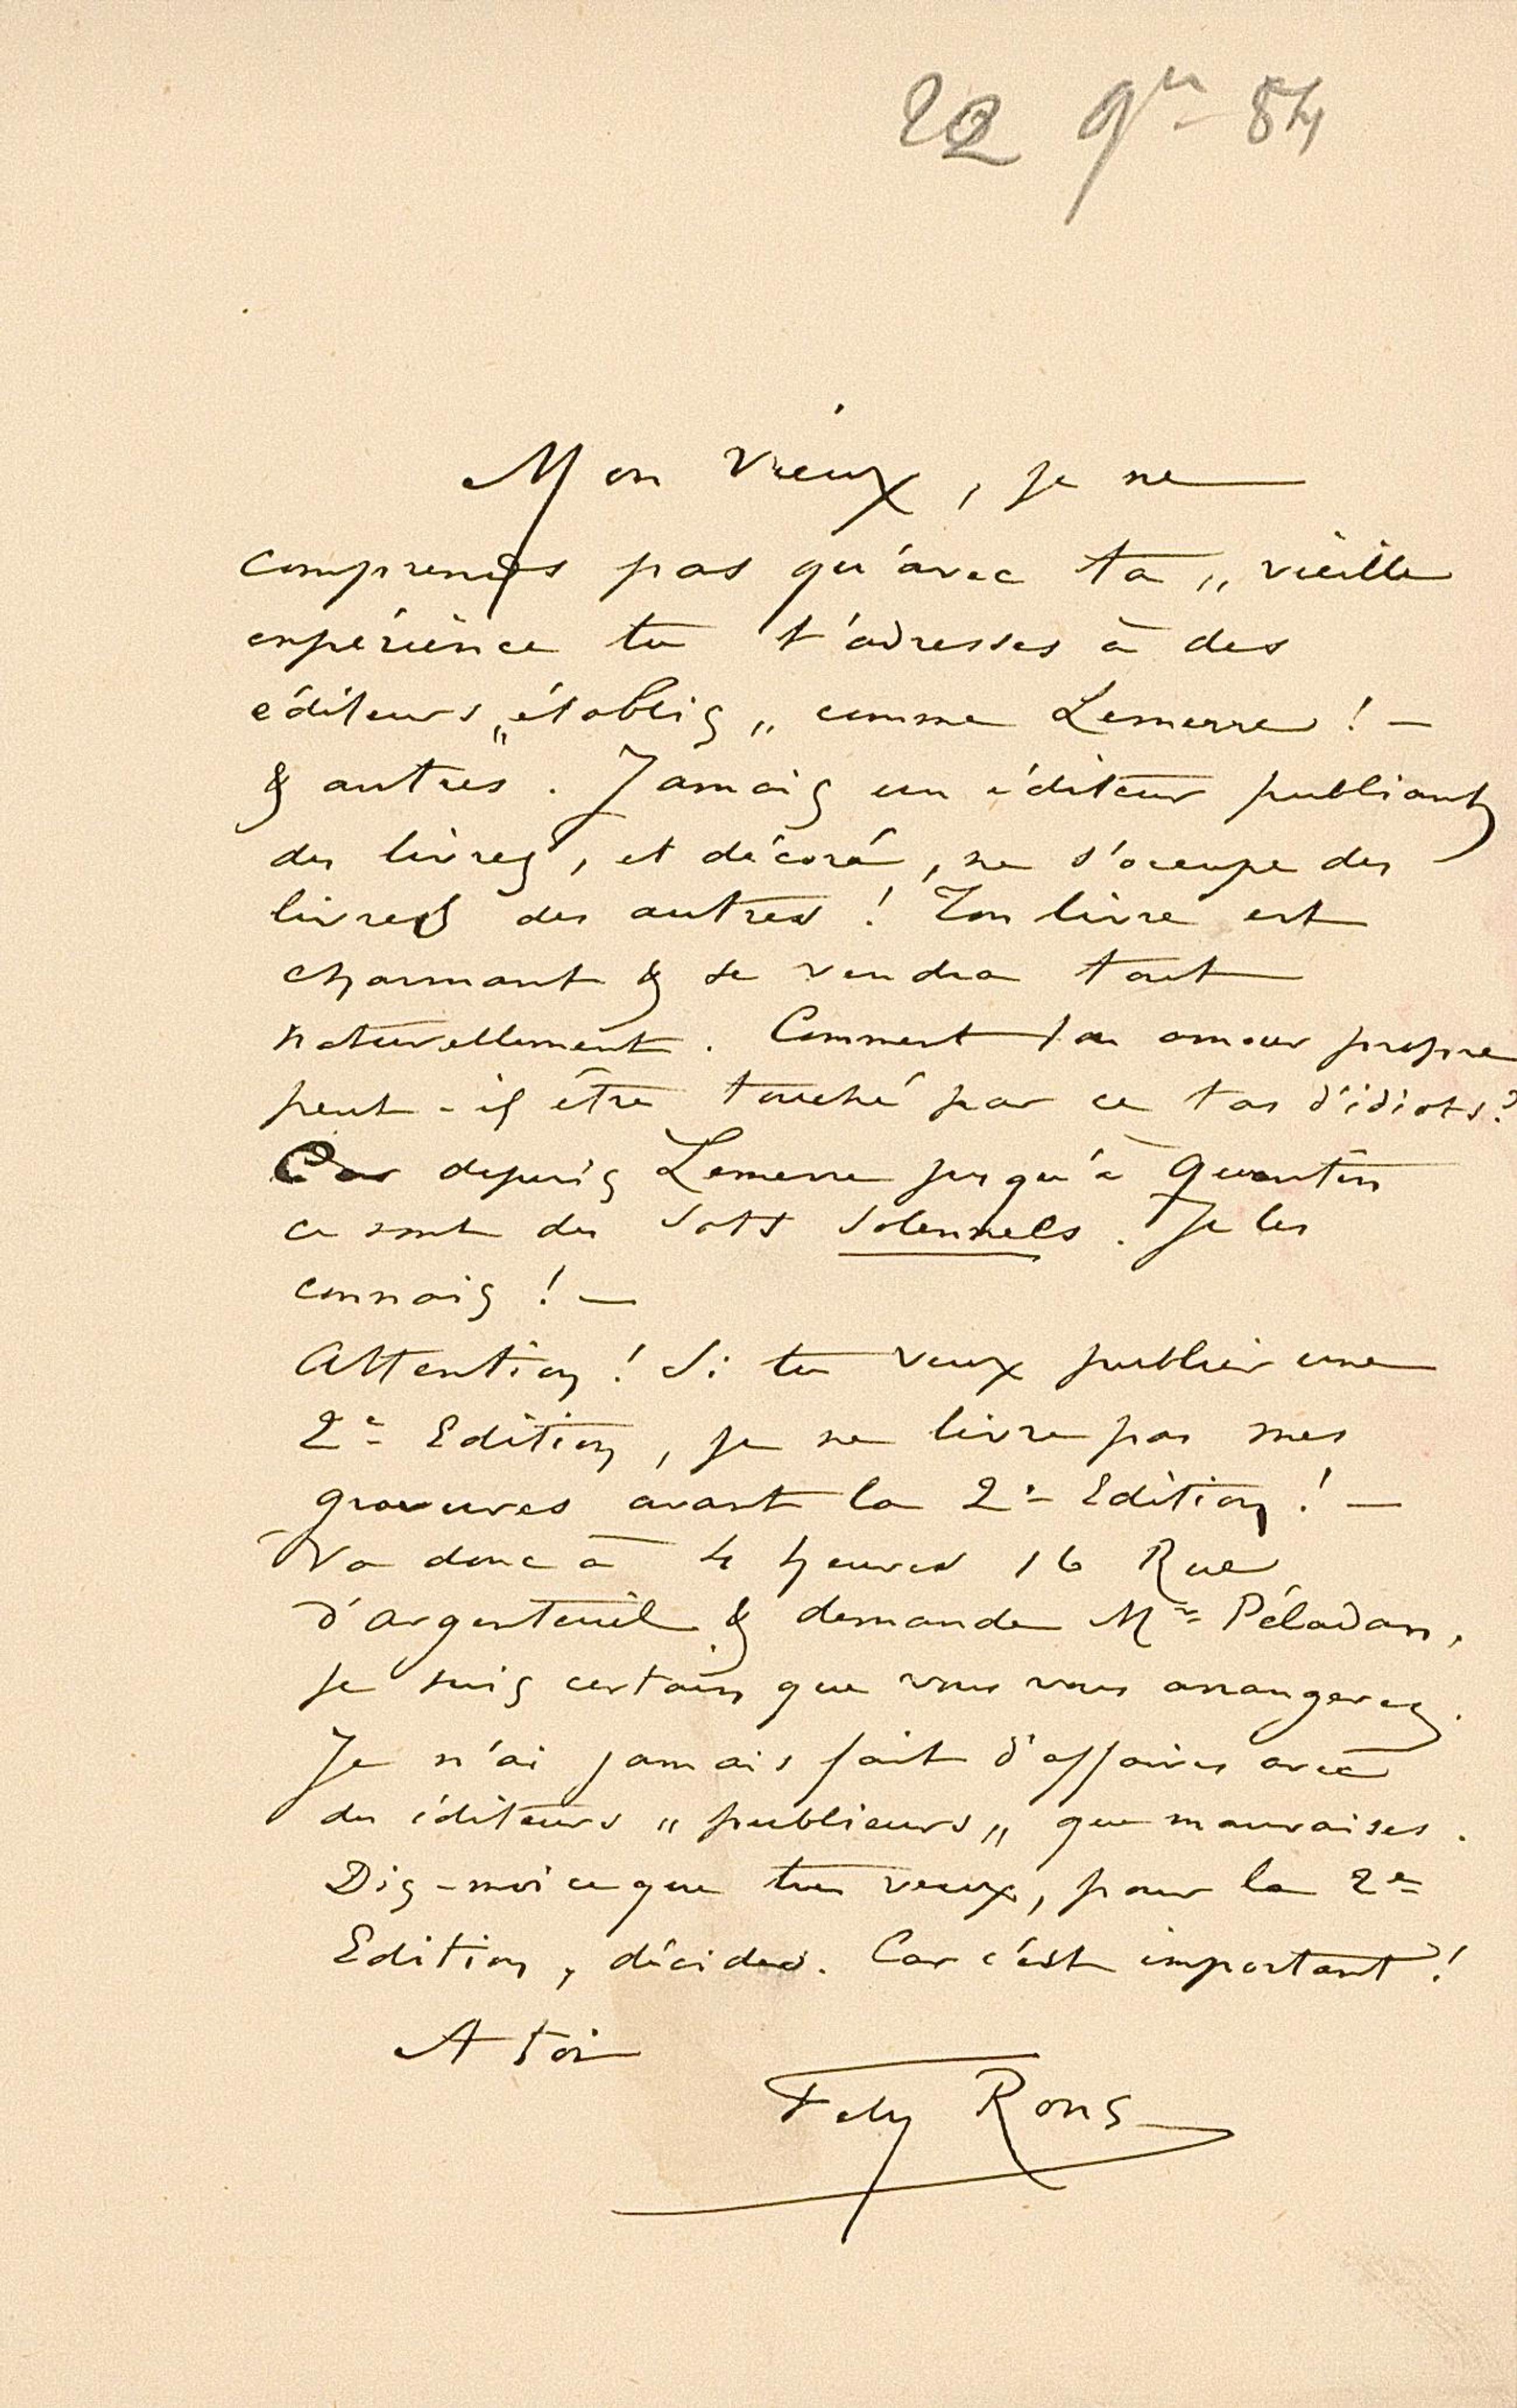 22 9re 84
Mon vieux, je ne
comprends pas qu'avec ta „ vieille
expérience tu t'adresses à des
éditeurs „ établis „ comme Lemerre ! –
& autres. Jamais un éditeur publiant
des livres, et décoré, ne s'occupe des
livres des autres ! Ton livre est
charmant & se vendra tout
naturellement. Comment ton amour propre
peut-il être touché par ce tas d'idiots ?
Car depuis Lemerre jusqu'à Quantin
ce sont des sots solennels. Je les
connais ! –
Attention ! Si tu veux publier une
2e Edition, je ne livre pas mes
gravures avant la 2e Edition ! –
Va donc à 4 heures 16 Rue
d'argenteuil & demande Mr Péladan,
je suis certain que vous vous arrangerez.
Je n'ai jamais fait d'affaires avec
des éditeurs „ publieurs „ que mauvaises.
Dis-moi ce que tu veux, pour la 2e
Edition, décides. Car c'est important !
A toi
Fély Rops